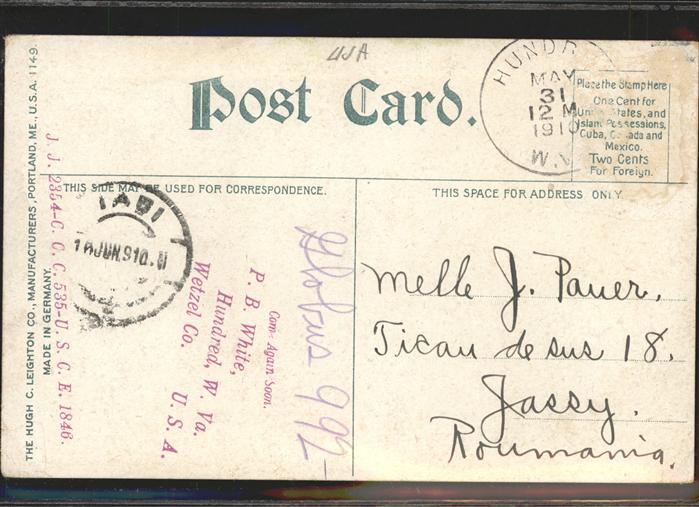 USA
Post Card.
HUNDR
MAY
31
12 M
1910
W.V
Place the Stamp Here
One Cent for
United States, and
Island Possessions,
Cuba, Canada and
Mexico.
Two Cents
for Foreign.
THIS SIDE MAY BE USED FOR CORRESPONDENCE.
THIS SPACE FOR ADDRESS ONLY.
THE HUGH C. LEIGHTON CO., MANUFACTURERS, PORTLAND, ME., U.S.A. 1149.
MADE IN GERMANY.
J. J. 2354-C. C. C. 535-U. S. C. E. 1846.
IAȘI
16 JUN. 910
Com- Again Soon.
P. B. White,
Hundred, W. Va.
Wetzel Co. U. S. A.
Globus 992
Melle J. Pauer.
Ticau de sus 18.
Jassy.
Roumania.